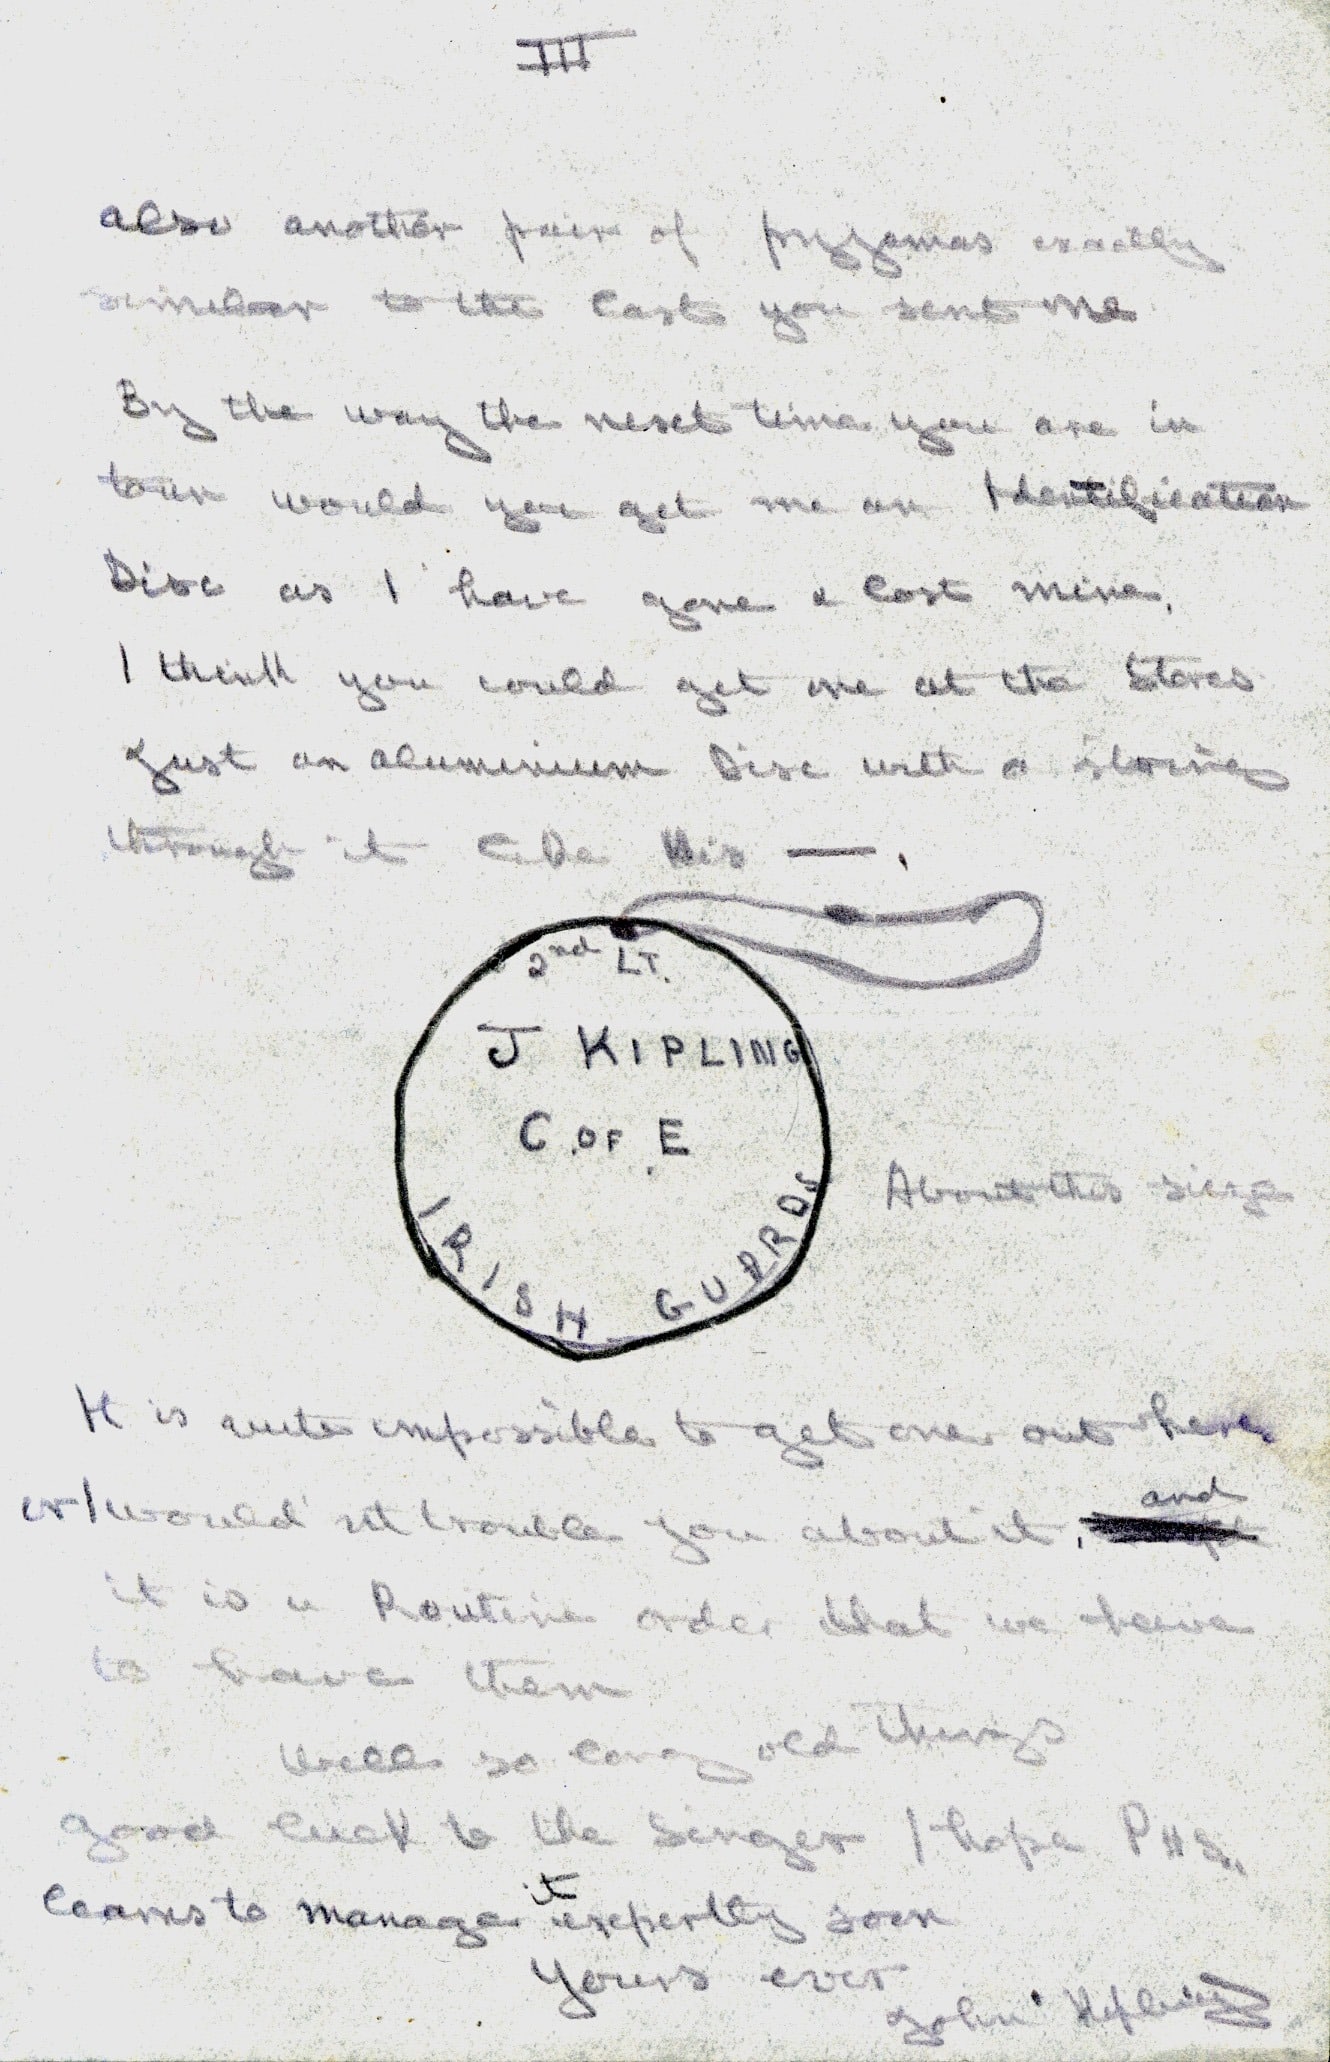 III
also another pair of pyzamas exactly
similar to the last you sent me
By the way the next time you are in
town would you get me an Identification
Disc as I have gone & lost mine.
I think you could get one at the Stores
Just an aluminium Disc with a string
through it like this — .
2nd LT.
J KIPLING
C. OF. E
IRISH GUARDS
About this size
It is quite impossible to get one out here
or I would'nt trouble you about it, and
it is a Routine order that we have
to have them
Well so long old things
good luck to the Singer I hope
learns to manage it expertly soon
Yours ever
John Kipling